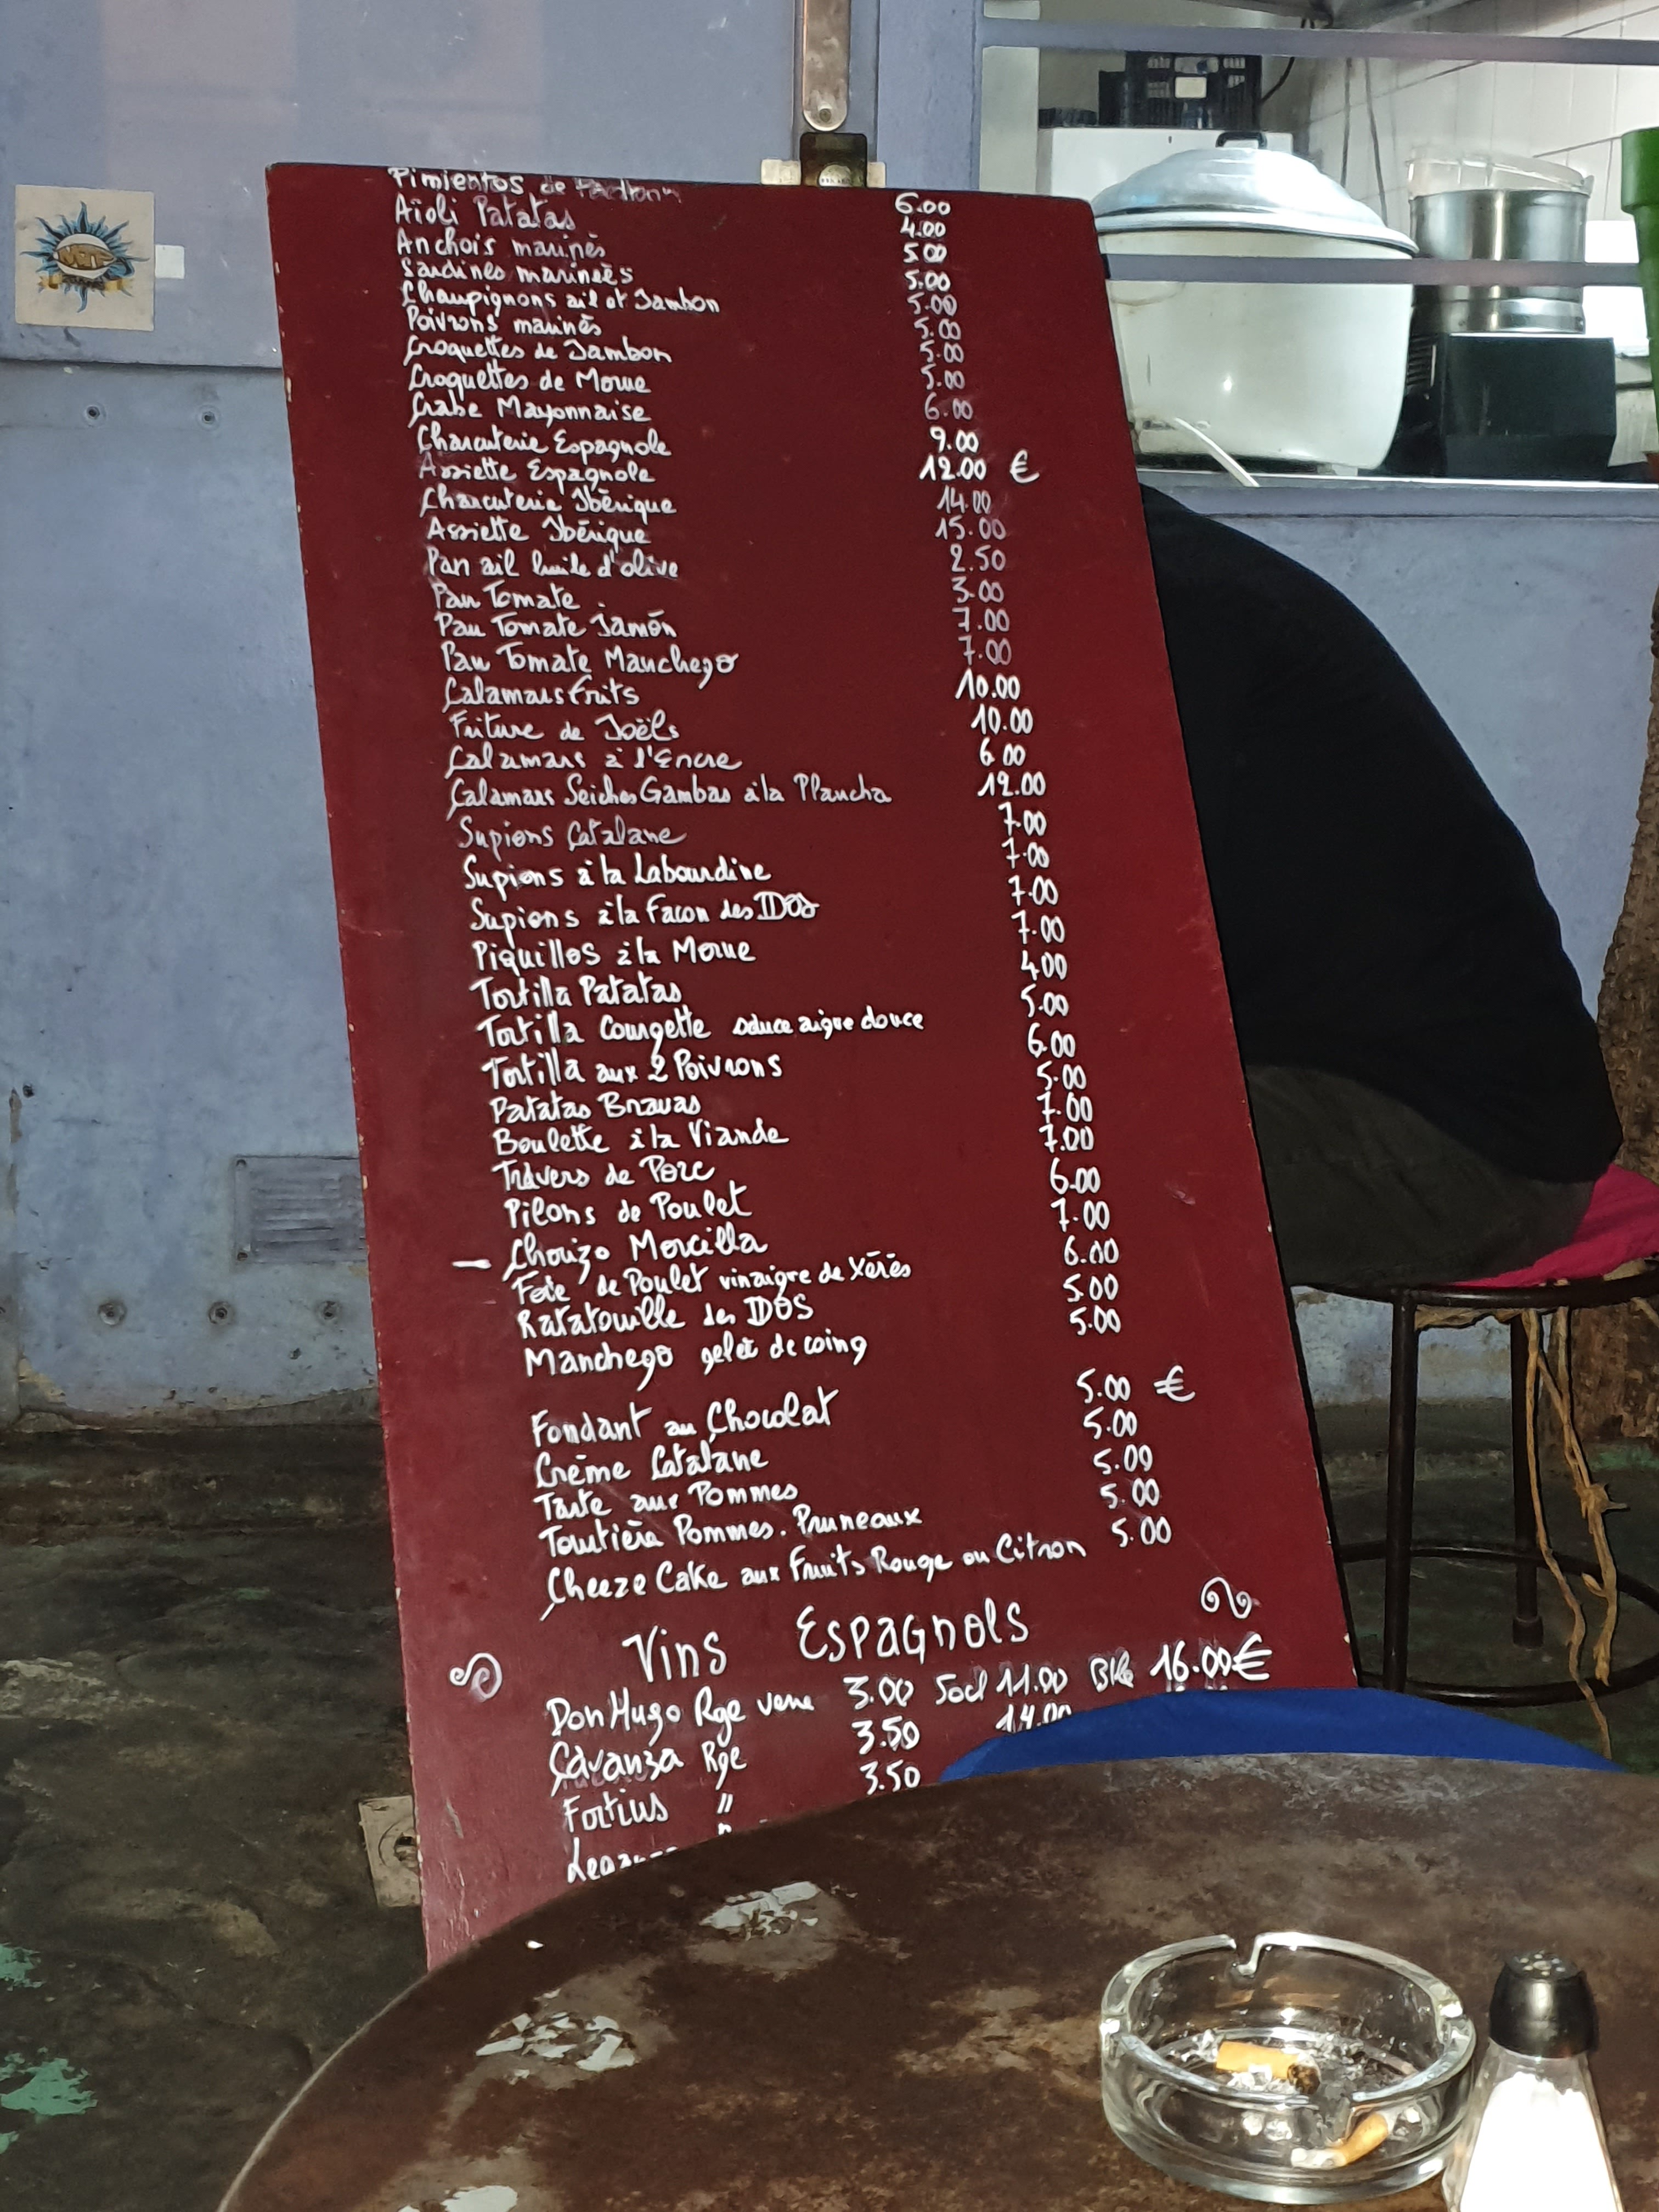 Pimientos de Padron 6.00
Aïoli Patatas 4.00
Anchois marinés 5.00
Sardines marineés 5.00
Champignons ail et Jambon 5.00
Poivrons marinés 5.00
Croquettes de Jambon 5.00
Croquettes de Morue 5.00
Crabe Mayonnaise 6.00
Charcuterie Espagnole 9.00
Assiette Espagnole 12.00 €
Charcuterie Ibérique 14.00
Assiette Ibérique 15.00
Pan ail huile d'olive 2.50
Pan Tomate 3.00
Pan Tomate Jamón 7.00
Pan Tomate Manchego 7.00
Calamars frits 10.00
Friture de Joëls 10.00
Calamars à l'Encre 6.00
Calamars Seiches Gambas à la Plancha 12.00
Supions Catalane 7.00
Supions à la Labourdine 7.00
Supions à la Facon des IDOS 7.00
Piquillos à la Morue 7.00
Tortilla Patatas 4.00
Tortilla Courgette sauce aigre douce 5.00
Tortilla aux 2 Poivrons 6.00
Patatas Bravas 5.00
Boulette à la Viande 7.00
Travers de Porc 7.00
Pilons de Poulet 6.00
Chorizo Morcilla 7.00
Foie de Poulet vinaigre de Xérès 6.00
Ratatouille des IDOS 5.00
Manchego gelée de coing 5.00
Fondant au Chocolat 5.00 €
Crème Catalane 5.00
Tarte aux Pommes 5.00
Tourtière Pommes. Pruneaux 5.00
Cheeze Cake aux Fruits Rouge ou Citron 5.00
Vins Espagnols
Don Hugo Rge verre 3.00 50cl 11.00 Blle 16.00€
Cavanza Rge 3.50 14.00
Fortius " 3.50